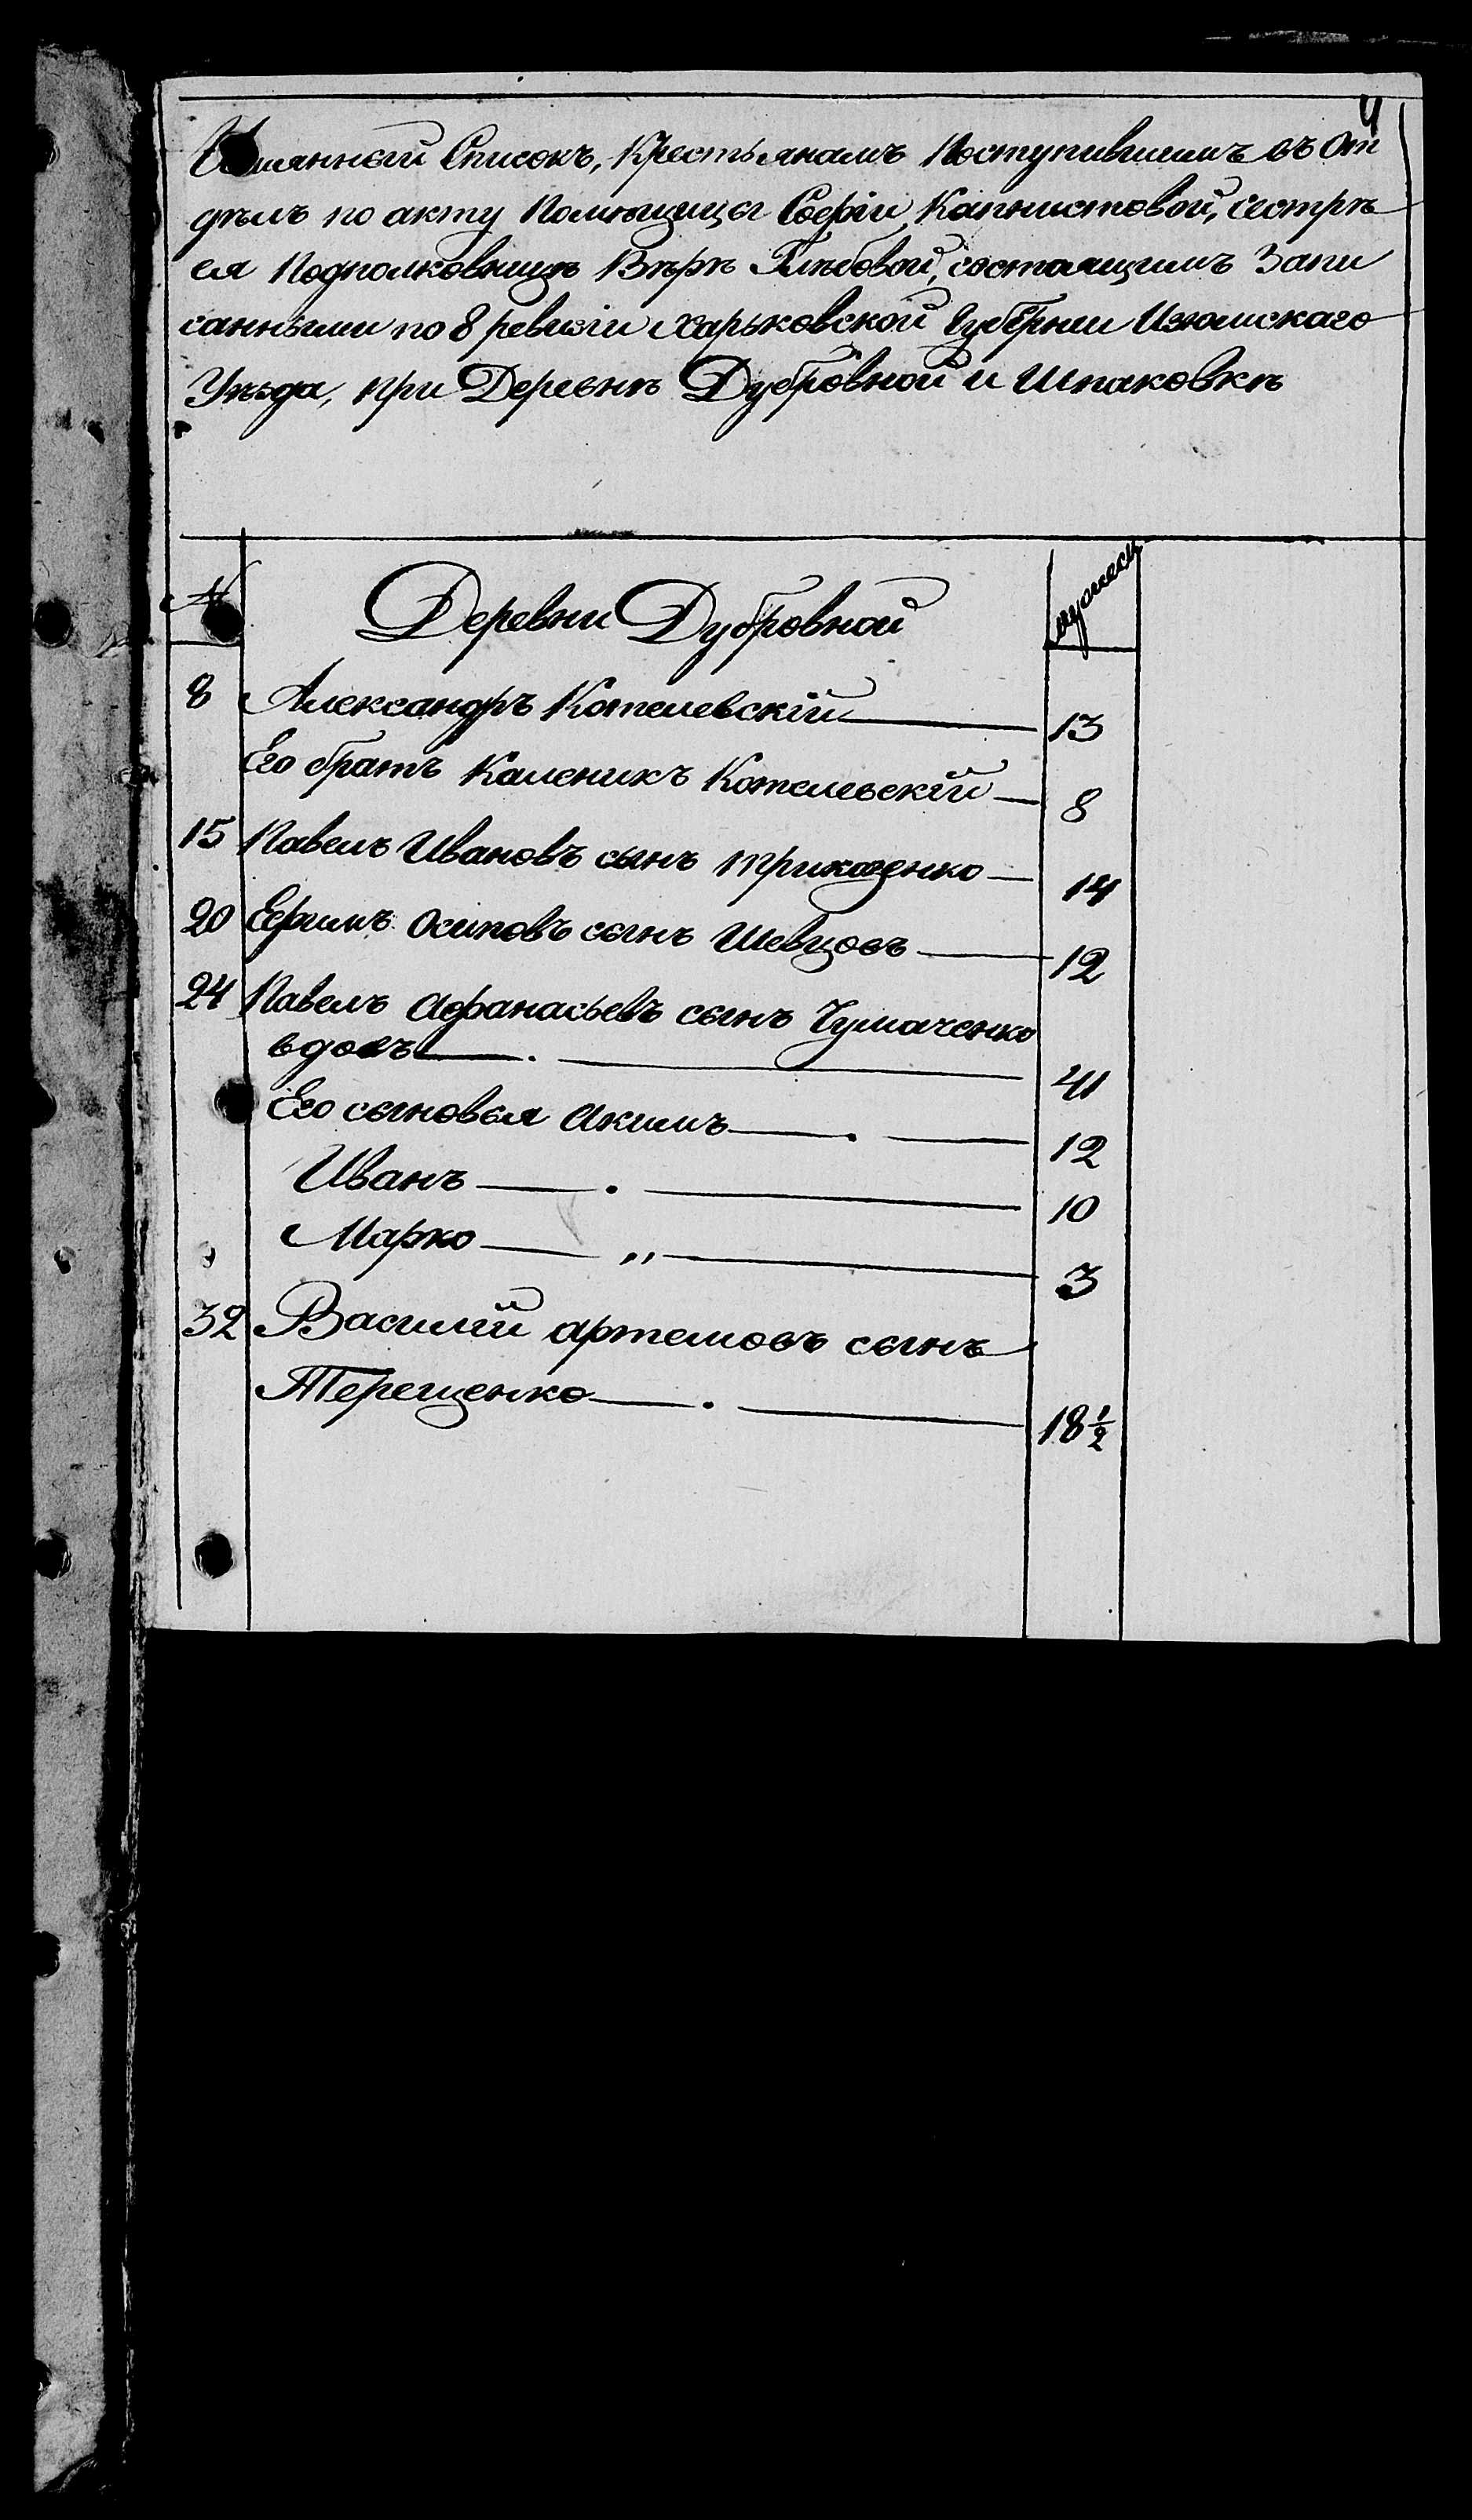 4
Имянный Списокъ, Крестьянамъ Поступившимъ въ От
дѣлъ по акту Помѣщицы Софіи Капнистовой, сестрѣ
ея Подполковницѣ Вѣрѣ Глѣбовой, состоящимъ Запи
санными по 8 ревизіи Харьковской Губерніи Изюмскаго
Уѣзда, при Деревнѣ Дубровной и Шпаковкѣ
№ Деревни Дубровной мужеск
8 Александръ Котелевскій 13
Его братъ Каленикъ Котелевскій 8
15 Павелъ Ивановъ сынъ 14
20 Ефимъ Осиповъ сынъ Шевцовъ 12
24 Павелъ Афанасьевъ сынъ Чумаченко
вдовъ 41
Его сыновья Акимъ 12
Иванъ 10
Марко „ 3
32 Василій артемовъ сынъ
Терещенко 18 1/2